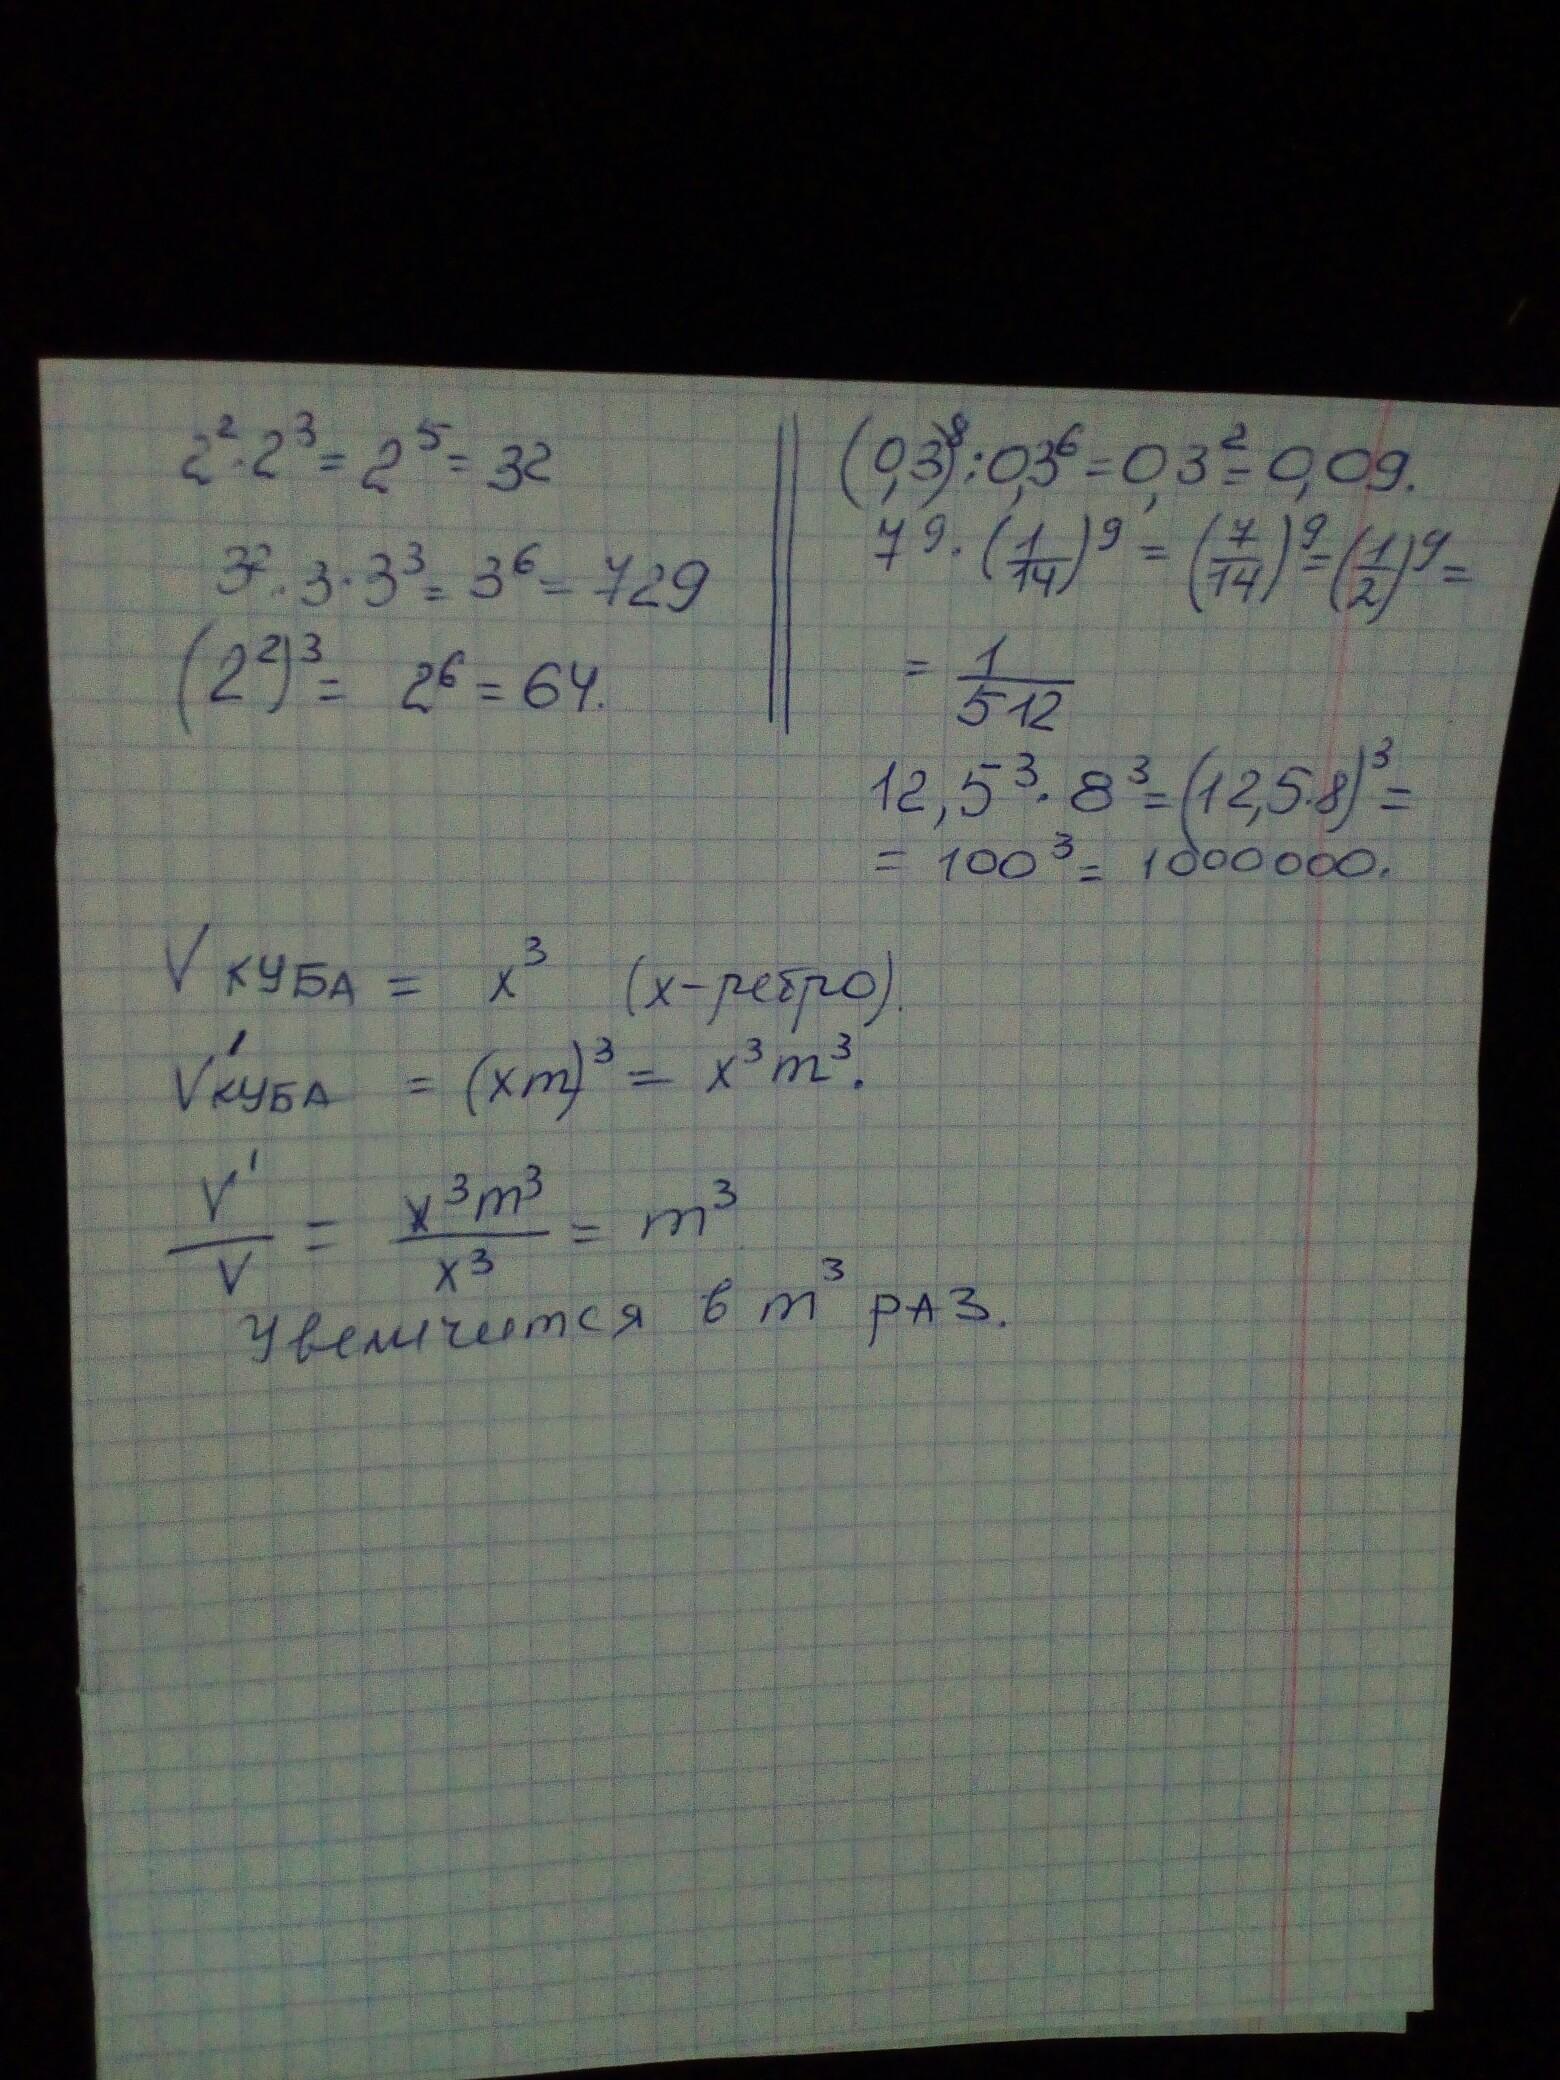 2²·2³=2⁵=32
3²·3·3³=3⁶=729
(2²)³= 2⁶=64.
(0,3)⁸:0,3⁶=0,3²=0,09.
7⁹·(1/14)⁹=(7/14)⁹=(1/2)⁹=
= 1/512
12,5³·8³=(12,5·8)³=
= 100³= 1000000.
V КУБА = x³ (x-ребро).
V' КУБА = (xm)³= x³m³.
V'/V = x³m³/x³ = m³
Увеличится в m³ раз.